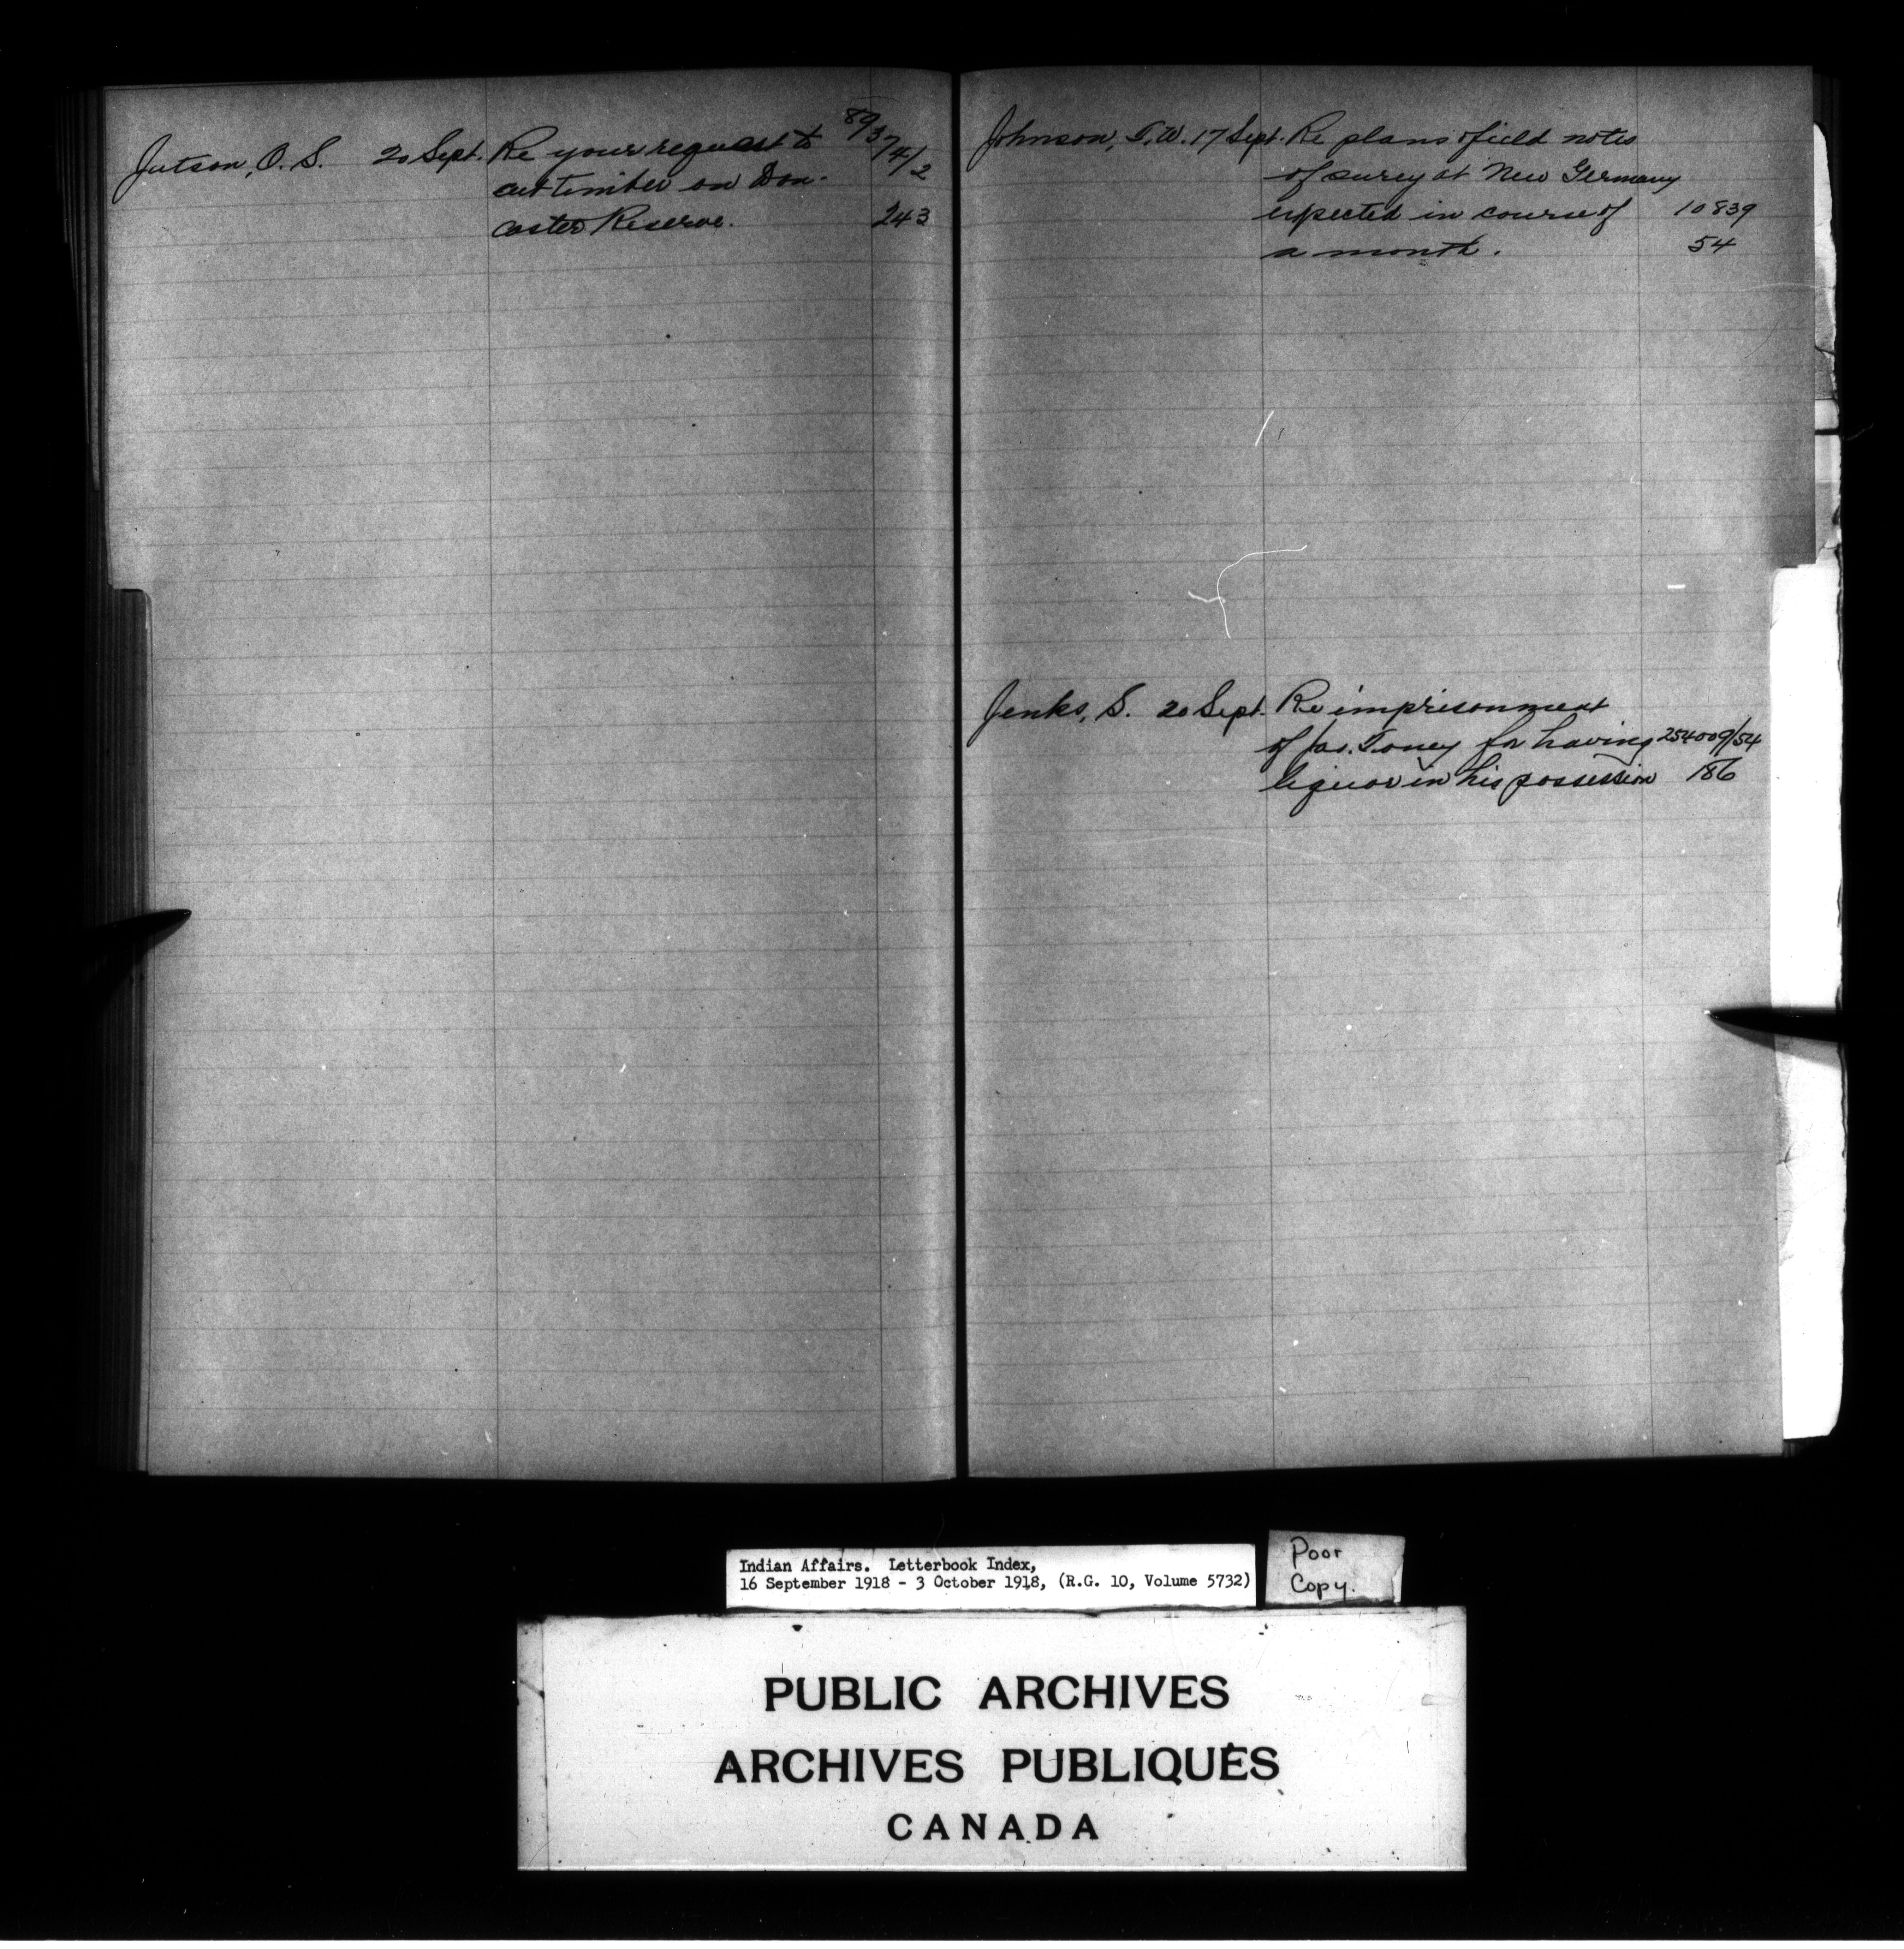 Jutson, O. S. 20 Sept. Re your request to 89374/2
cut timber on Don-
caster Reserve. 243
Johnson, T. W. 17 Sept. Re plans & field notes
of survey at New Germany
expected in course of 10839
a month. 54
Jenks, S. 20 Sept. Re imprisonment
of Jas. Toney for having 254009/54
liquor in his possession 186
Indian Affairs. Letterbook Index,
16 September 1918 - 3 October 1918, (R.G. 10, Volume 5732)
Poor
Copy.
PUBLIC ARCHIVES
ARCHIVES PUBLIQUES
CANADA